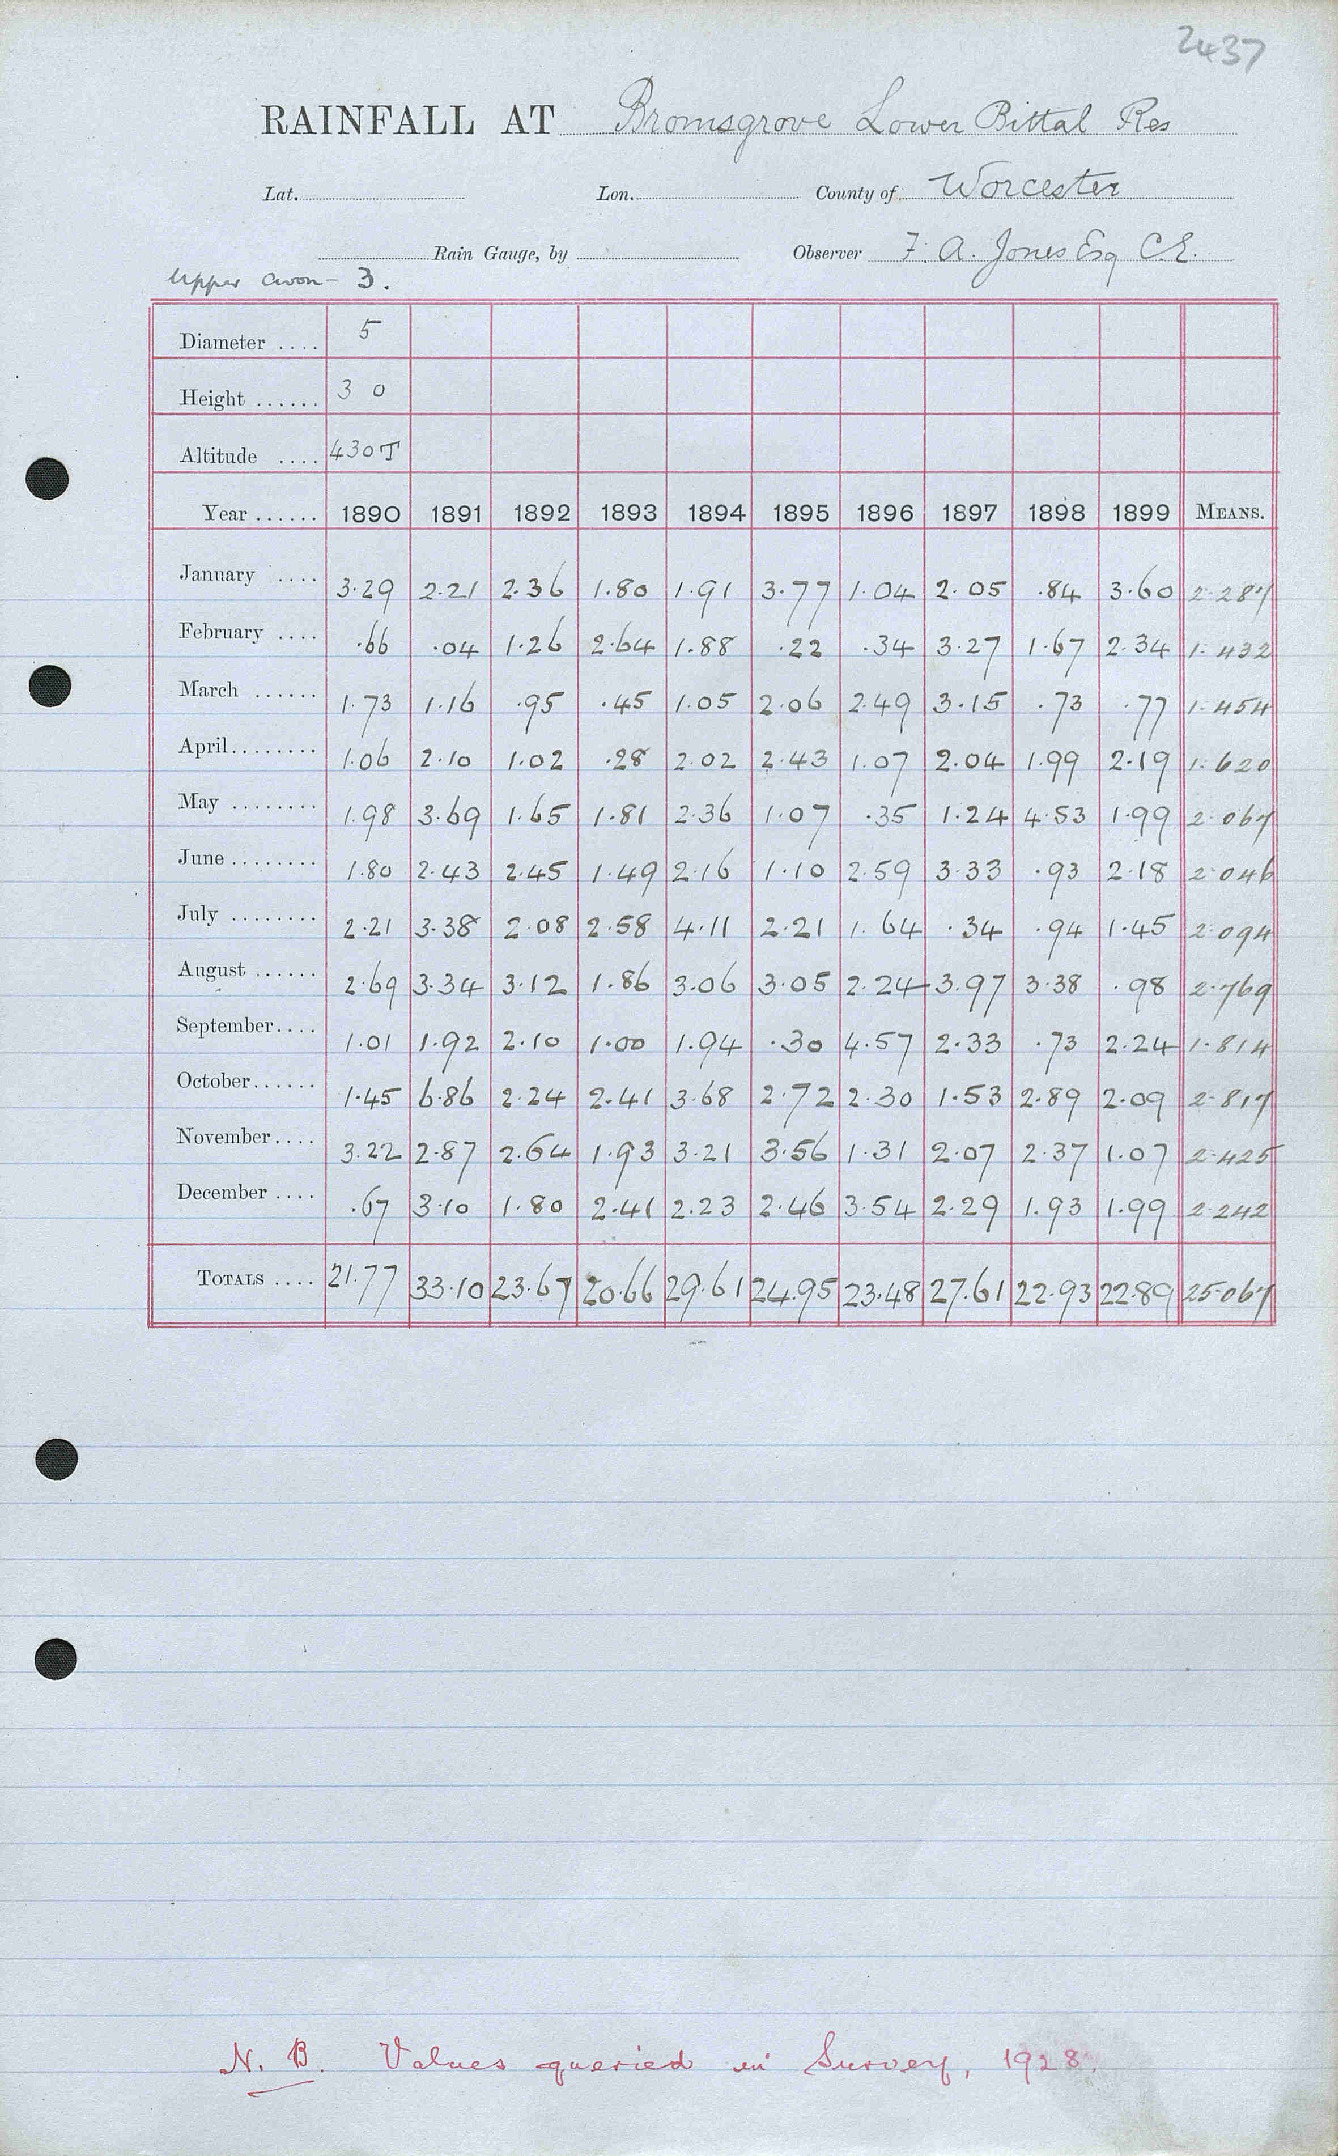 2437
RAINFALL AT Bromsgrove Lower Bittal Res
Lat. Lon. County of Worcester
Rain Gauge, by Observer F. A. Jones Esq C.E.
Upper Avon - 3.
Diameter .... 5
Height ...... 3 0
Altitude .... 430T
Year ...... 1890 1891 1892 1893 1894 1895 1896 1897 1898 1899 MEANS.
January .... 3.29 2.21 2.36 1.80 1.91 3.77 1.04 2.05 .84 3.60 2.287
February .... .66 .04 1.26 2.64 1.88 .22 .34 3.27 1.67 2.34 1.432
March ...... 1.73 1.16 .95 .45 1.05 2.06 2.49 3.15 .73 .77 1.454
April........ 1.06 2.10 1.02 .28 2.02 2.43 1.07 2.04 1.99 2.19 1.620
May ........ 1.98 3.69 1.65 1.81 2.36 1.07 .35 1.24 4.53 1.99 2.067
June ........ 1.80 2.43 2.45 1.49 2.16 1.10 2.59 3.33 .93 2.18 2.046
July ........ 2.21 3.38 2.08 2.58 4.11 2.21 1.64 .34 .94 1.45 2.094
August ...... 2.69 3.34 3.12 1.86 3.06 3.05 2.24 3.97 3.38 .98 2.769
September.... 1.01 1.92 2.10 1.00 1.94 .30 4.57 2.33 .73 2.24 1.814
October...... 1.45 6.86 2.24 2.41 3.68 2.72 2.30 1.53 2.89 2.09 2.817
November.... 3.22 2.87 2.64 1.93 3.21 3.56 1.31 2.07 2.37 1.07 2.425
December .... .67 3.10 1.80 2.41 2.23 2.46 3.54 2.29 1.93 1.99 2.242
TOTALS .... 21.77 33.10 23.67 20.66 29.61 24.95 23.48 27.61 22.93 22.89 25.067
N. B. Values queried in Survey, 1928.